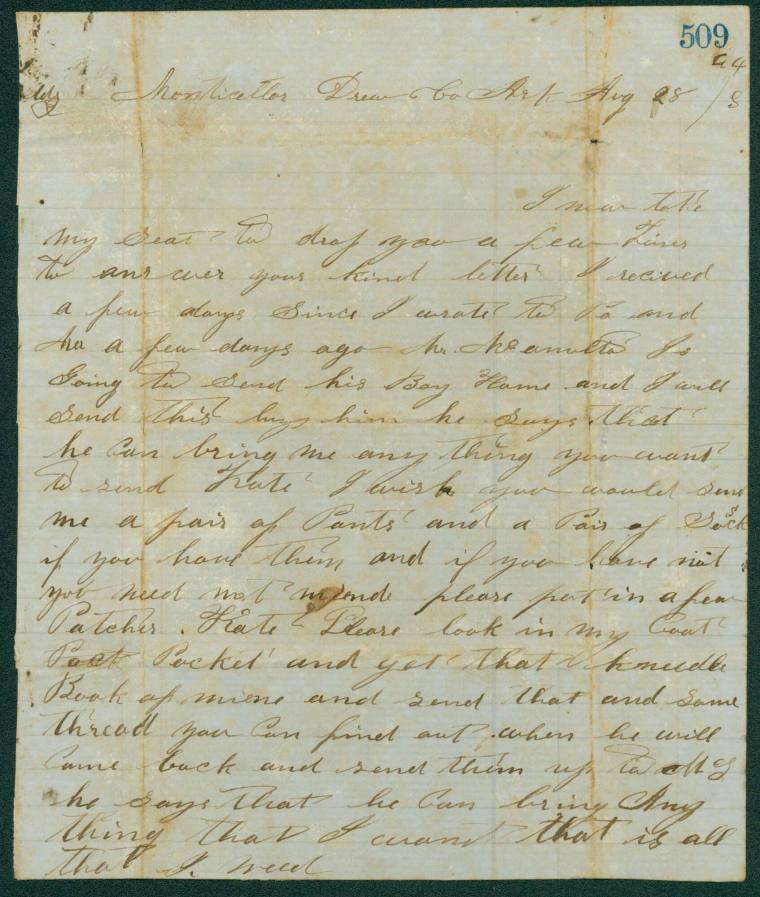 509
Monticellor Drew Co Ark Aug 28 / 64
I now take
my seat to drop you a few Lines
to answer your kind letter I recived
a few days since I wrote to Pa and
Ma a few days ago Mr. is
Going to send his Boy Home and I will
send this by him he says that
he Can bring me any thing you want
to send Kate I wish you would send
me a pair of Pants and a Pair of Socks
if you have them and if you have not
you need not mind please put in a few
Patches. Kate Please look in my Coat
Pock Pocket and get that kneedle
Book of miene and send that and some
thread you Can find out when he will
Come back and send them up to
he says that he Can bring Any
thing that I want that is all
that I need